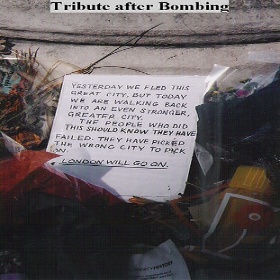 Tribute after Bombing
YESTERDAY WE FLED THIS
GREAT CITY, BUT TODAY
WE ARE WALKING BACK
INTO AN EVEN STRONGER,
GREATER CITY.
THE PEOPLE WHO DID
THIS SHOULD KNOW THEY HAVE
FAILED. THEY HAVE PICKED
THE WRONG CITY TO PICK
ON.
LONDON WILL GO ON.